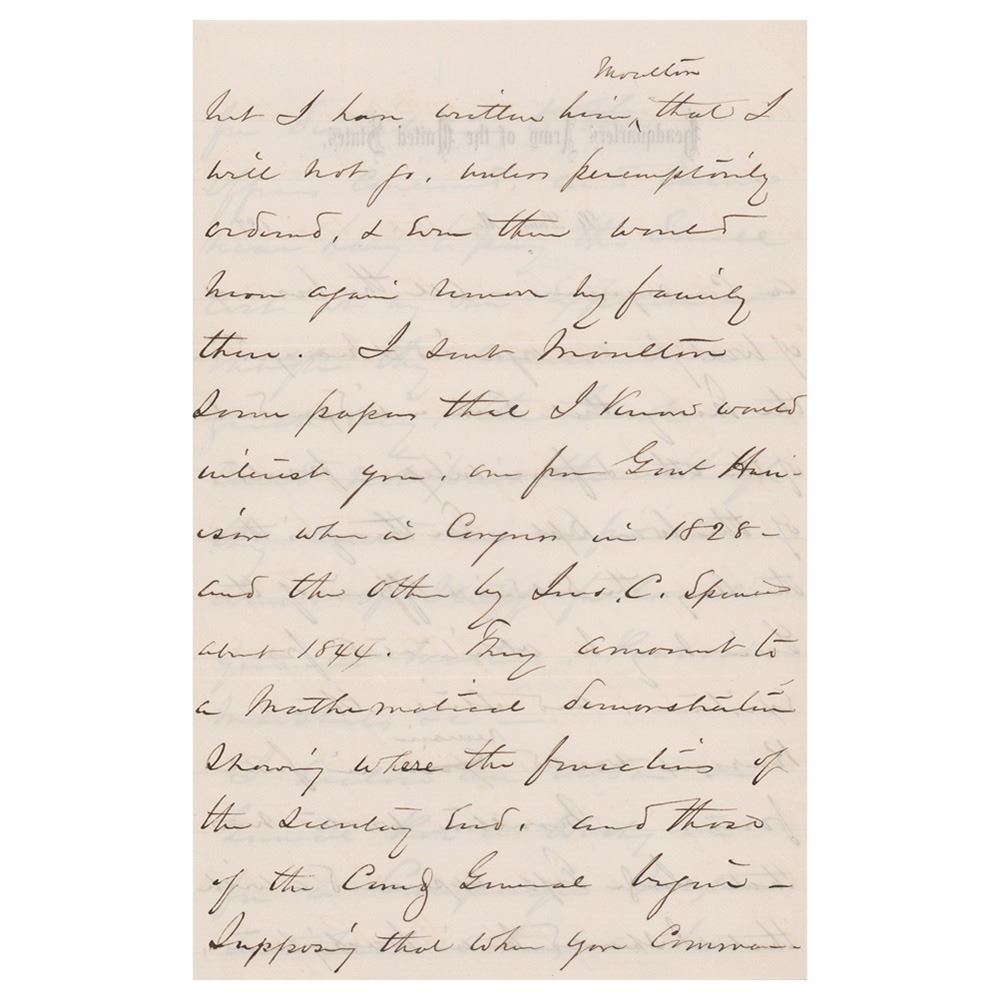 Moulton
but I have written him, that I
will not go, unless peremptorily
ordered, & even then would
never again remove my family
there. I sent Moulton
some papers that I know would
interest you, one from Genl Harri-
ison when in Congress in 1828-
and the other by Jno. C. Spencer
about 1844. They amount to
a Mathematical demonstration
showing where the functions of
the Secretary End, and those
of the Comdg General begin -
Supposing that when you Comman-
Headquarters Army of the United States,